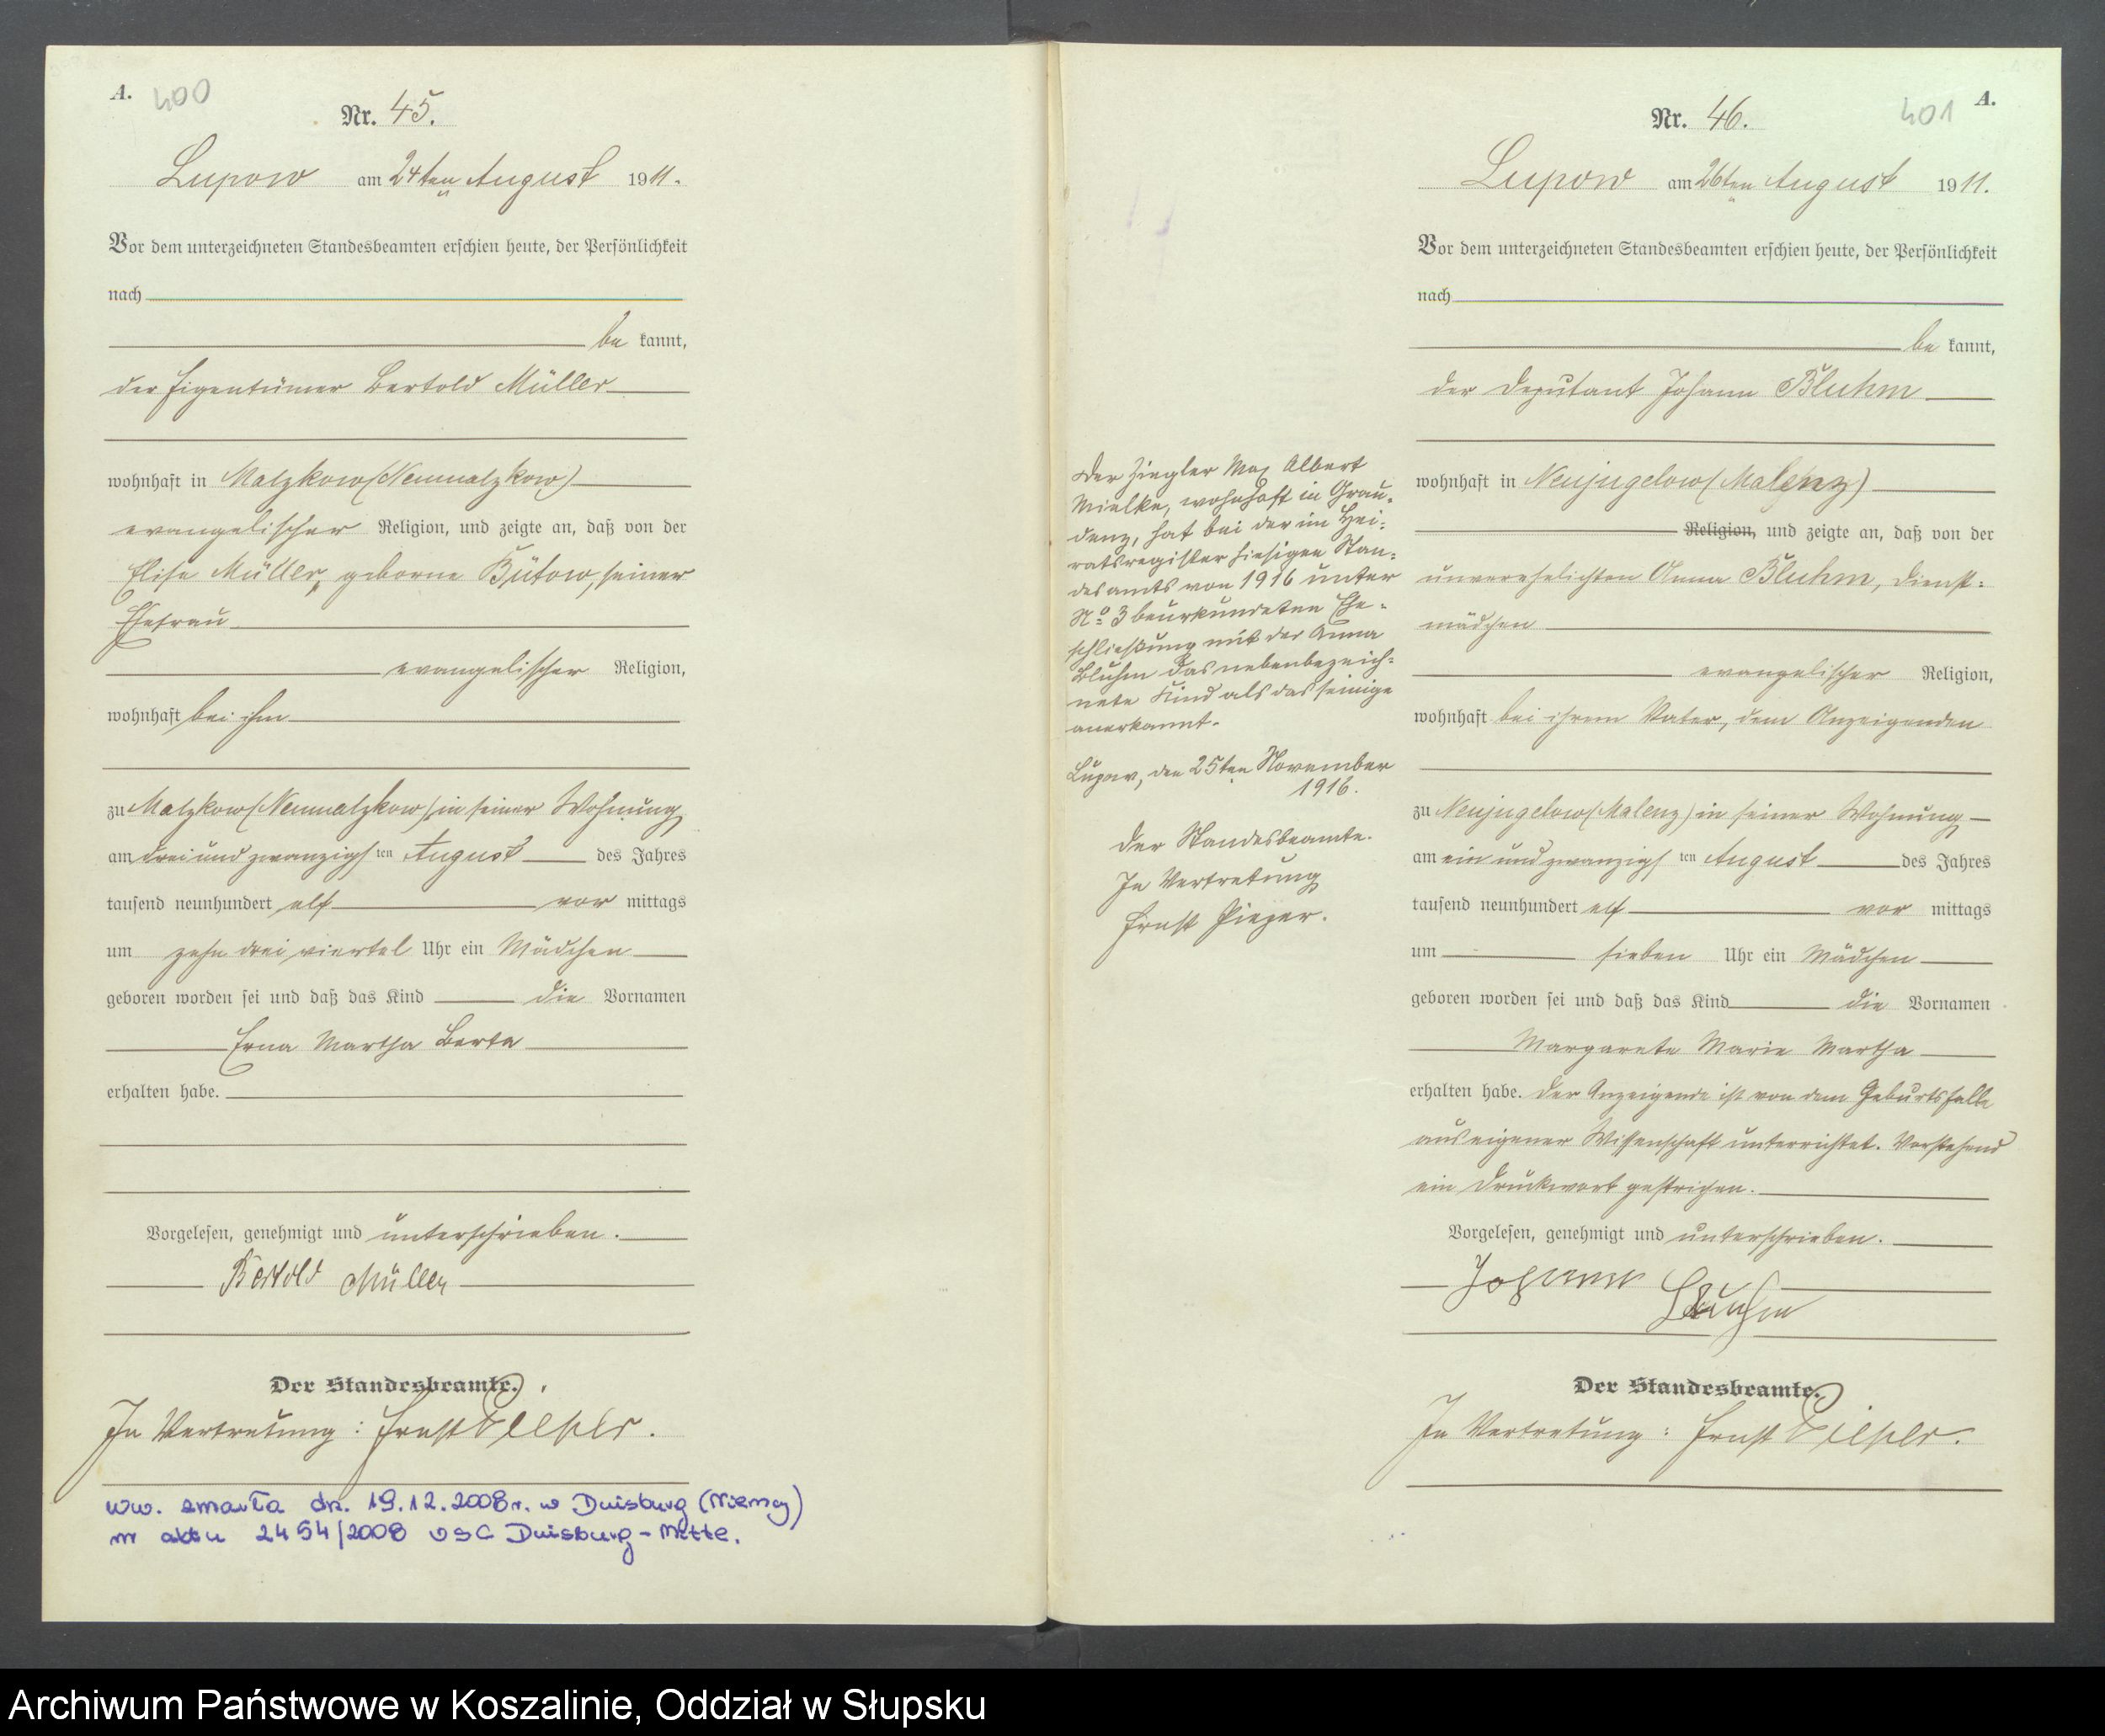 A.
400
Nr. 45.
Lupow am 24ten August 1911.
Vor dem unterzeichneten Standesbeamten erschien heute, der Persönlichkeit
nach
be kannt,
der Eigentümer Bertold Müller
wohnhaft in Malzkow (Neumalzkow)
evangelischer Religion, und zeigte an, daß von der
Elise Müller, geborne Bütow, seiner
Ehefrau
evangelischer Religion,
wohnhaft bei ihm
zu Malzkow (Neumalzkow) in seiner Wohnung
am drei und zwanzigsten August des Jahres
tausend neunhundert elf vor mittags
um zehn drei viertel Uhr ein Mädchen
geboren worden sei und daß das Kind die Vornamen
Erna Martha Berta
erhalten habe.
Vorgelesen, genehmigt und unterschrieben.
Bertold Müller
Der Standesbeamte.
In Vertretung: Ernst Pieper.
ww. zmarła dn. 19.12.2008 r. w Duisburg (Niemcy)
nr aktu 2454/2008 USC Duisburg-Mitte.
Der Ziegler Max Albert
Mielke, wohnhaft in Grau-
denz, hat bei der im Hei-
ratsregister hiesigen Stan-
desamts von 1916 unter
No 3 beurkundeten Ehe-
schließung mit der Anna
Bluhm das nebenbezeich-
nete Kind als das seinige
anerkannt.
Lupow, den 25ten November
1916.
Der Standesbeamte.
In Vertretung
Ernst Pieper.
A.
401
Nr. 46.
Lupow am 26ten August 1911.
Vor dem unterzeichneten Standesbeamten erschien heute, der Persönlichkeit
nach
be kannt,
der Deputant Johann Bluhm
wohnhaft in Neujugelow (Malenz)
Religion, und zeigte an, daß von der
unverehelichten Anna Bluhm, Dienst-
mädchen
evangelischer Religion,
wohnhaft bei ihrem Vater, dem Anzeigenden
zu Neujugelow (Malenz) in seiner Wohnung
am ein und zwanzigsten August des Jahres
tausend neunhundert elf vor mittags
um sieben Uhr ein Mädchen
geboren worden sei und daß das Kind die Vornamen
Margarete Marie Martha
erhalten habe. Der Anzeigende ist von dem Geburtsfalle
aus eigener Wissenschaft unterrichtet. Vorstehend
ein Druckwort gestrichen.
Vorgelesen, genehmigt und unterschrieben.
Johann Bluhm
Der Standesbeamte.
In Vertretung: Ernst Pieper.
Archiwum Państwowe w Koszalinie, Oddział w Słupsku